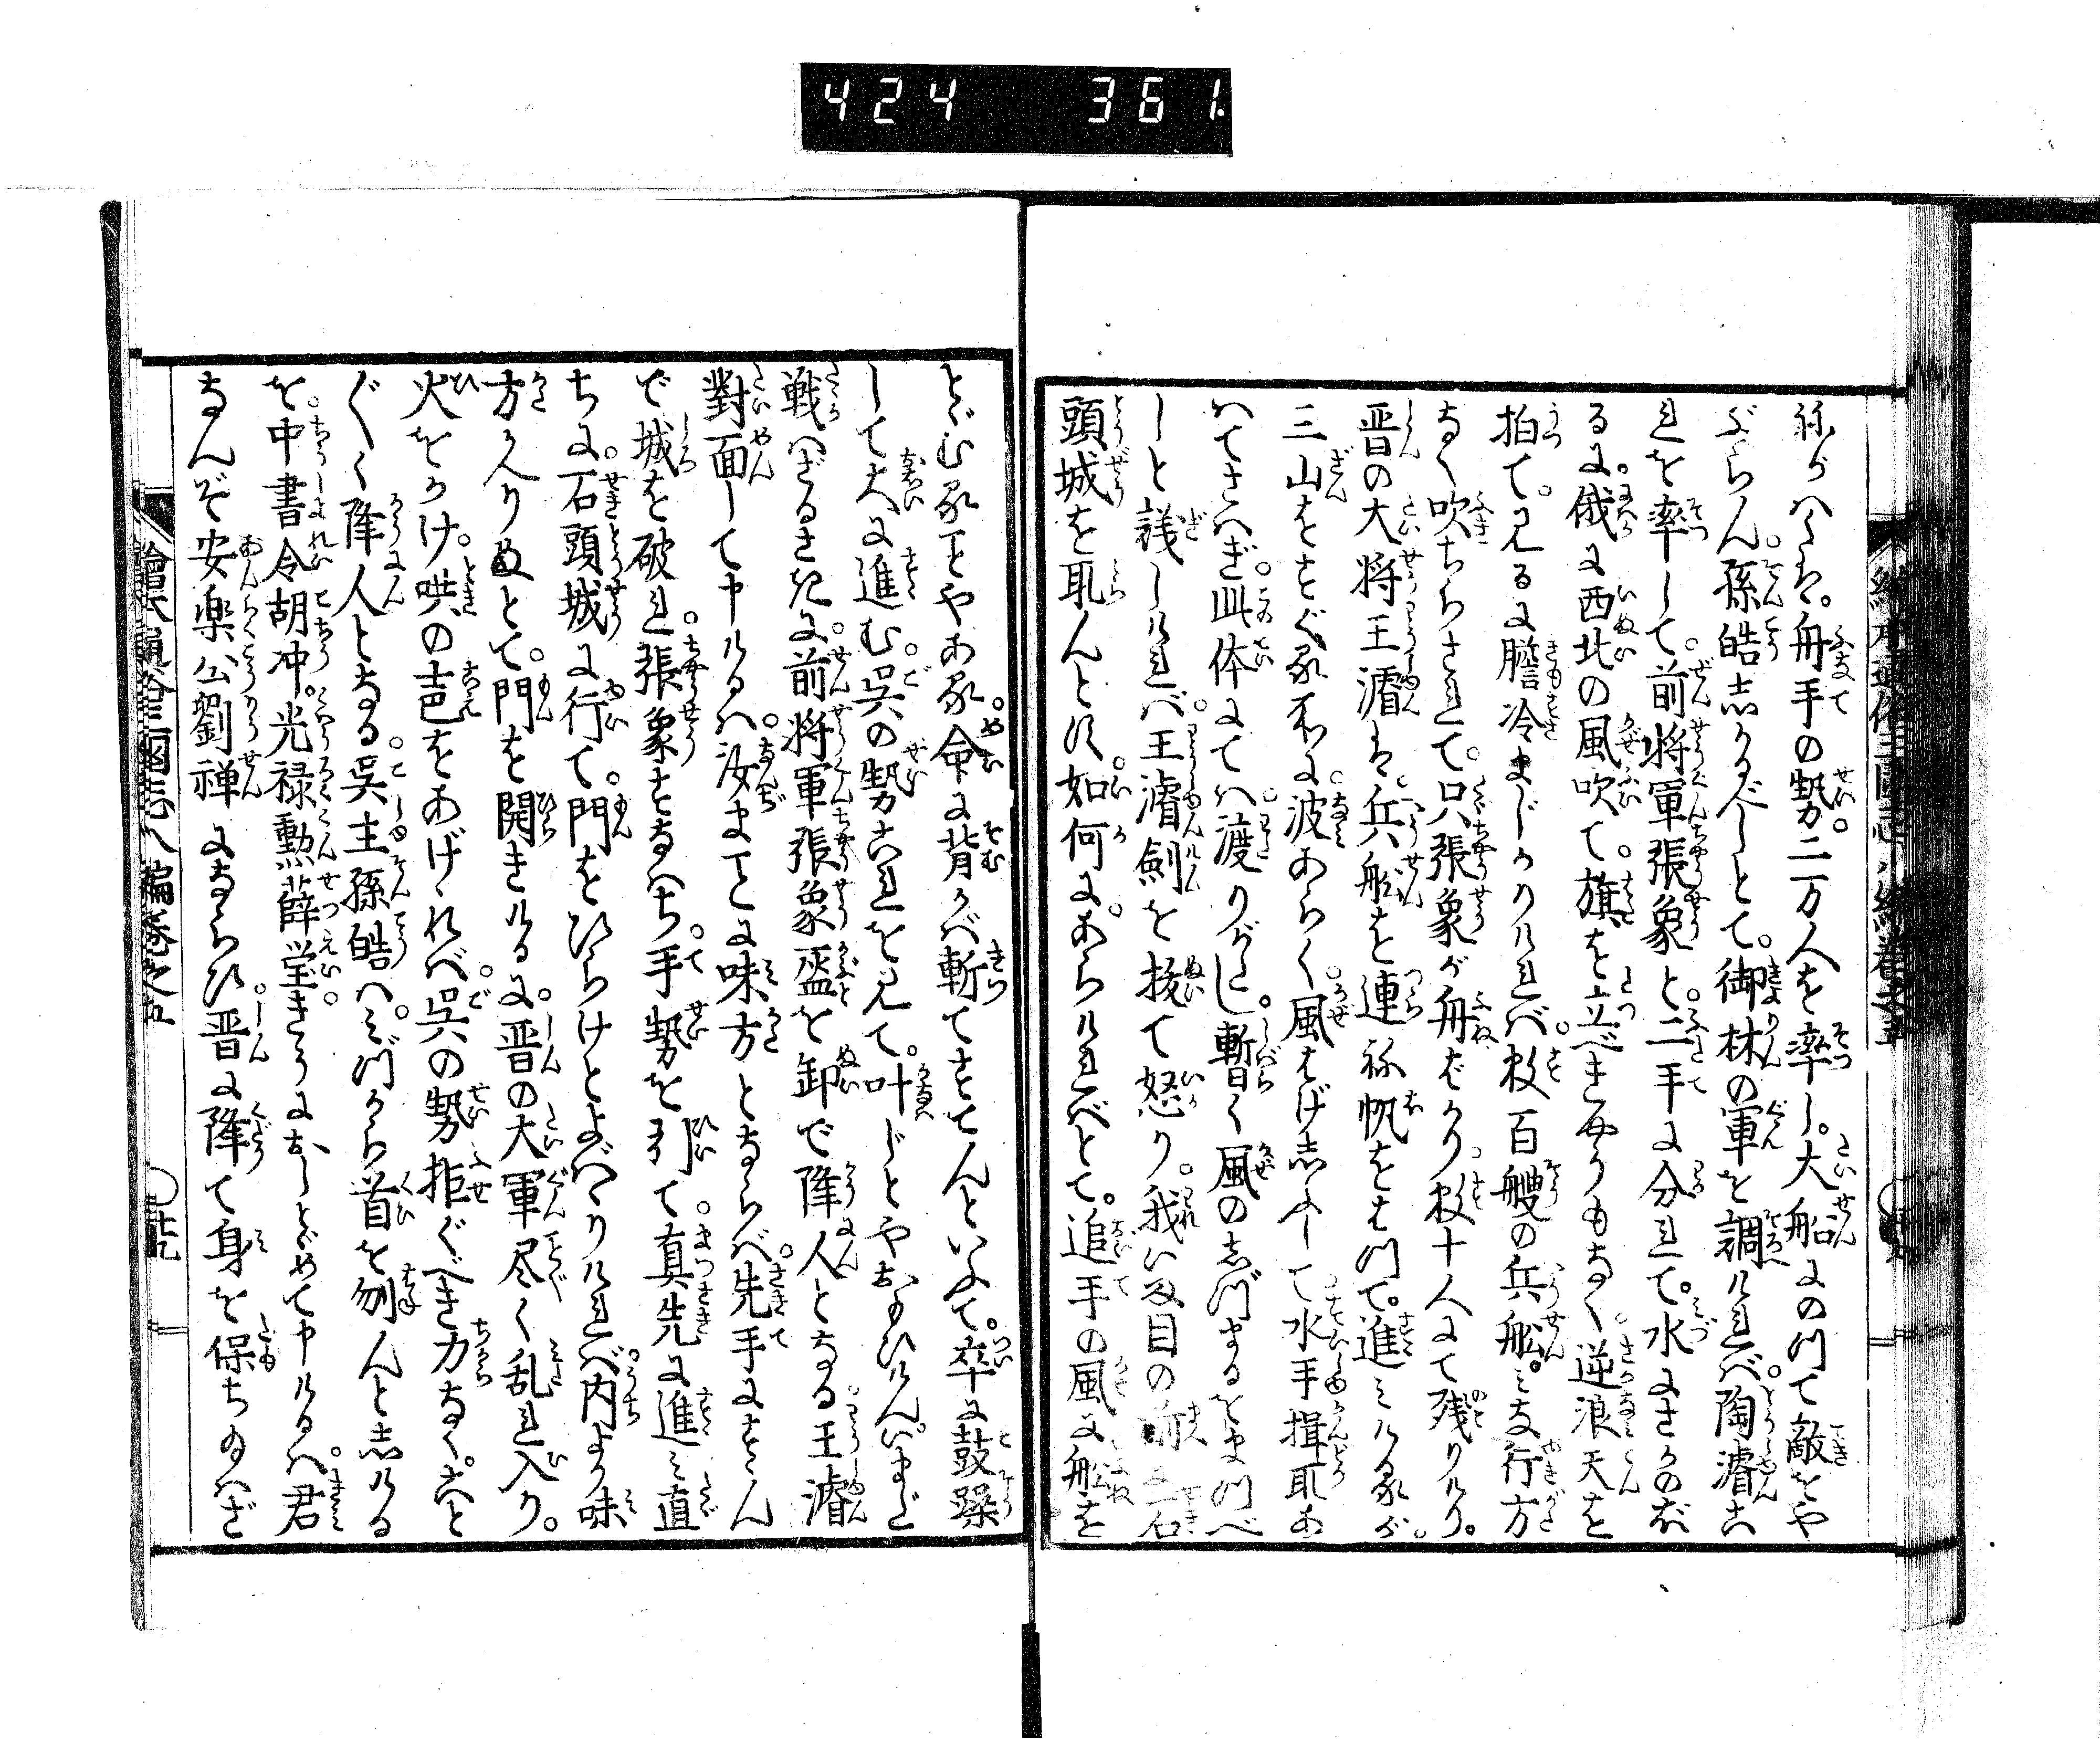 424 361
祢がハくハ。舟手の勢。二万人を率し。大船にのつて敵をや
ぶらん。孫皓志かるべしとて。御林の軍を調ければ。陶濬こ
れを率して。前将軍張象と。二手に分れて。水にさかのぼ
るに。俄に西北の風吹て。旗を立べきやうもなく。逆浪天を
拍て。見るに膽冷まじかりければ。数百艘の兵舩。ミな行方
なく吹ちらされて。只張象が舟ばかり。数十人にて残りけり。
晋の大将王濬ハ。兵舩を連祢帆をはつて。進ミけるが。
三山をすぐる不に。波あらく。風はげ志ふして水手揖取あ
ハてさハぎ。此体にてハ。渡りがたし。暫く風の志づまるをまつべ
しと議しければ。王濬劍を抜て怒り。我いま目の前に石
頭城を取んとす。如何にあらければとて。追手の風に舩を
とゞむるヿやある。命に背かバ斬てすてんといふて。卒に鼓躁
して大に進む。呉の勢これを見て。叶じとやおもひけん。いまだ
戦ハざるさきに。前将軍張象盔を卸で降人となる。王濬
對面して申けるハ。汝まことに味方とならバ。先手にすゝん
で城を破れ。張象すなハち。手勢を引て。真先に進ミ直
ちに。石頭城に行て。門をひらけとよバゝりければ。内より味
方入りぬとて。門を開きけるに。晋の大軍尽く乱れ入り。
火をかけ。哄の声をあげゝれバ。呉の勢拒ぐべき力なく。こと
〲く降人となる。呉主孫皓ハ。ミづから首を刎んと志ける
を。中書令胡冲。光禄勲薛瑩。きうにおしとゞめて申けるハ。君
なんぞ安楽公劉禅にならひ。晋に降て身を保ちゐハざ
繪本通俗三國志八編巻之五